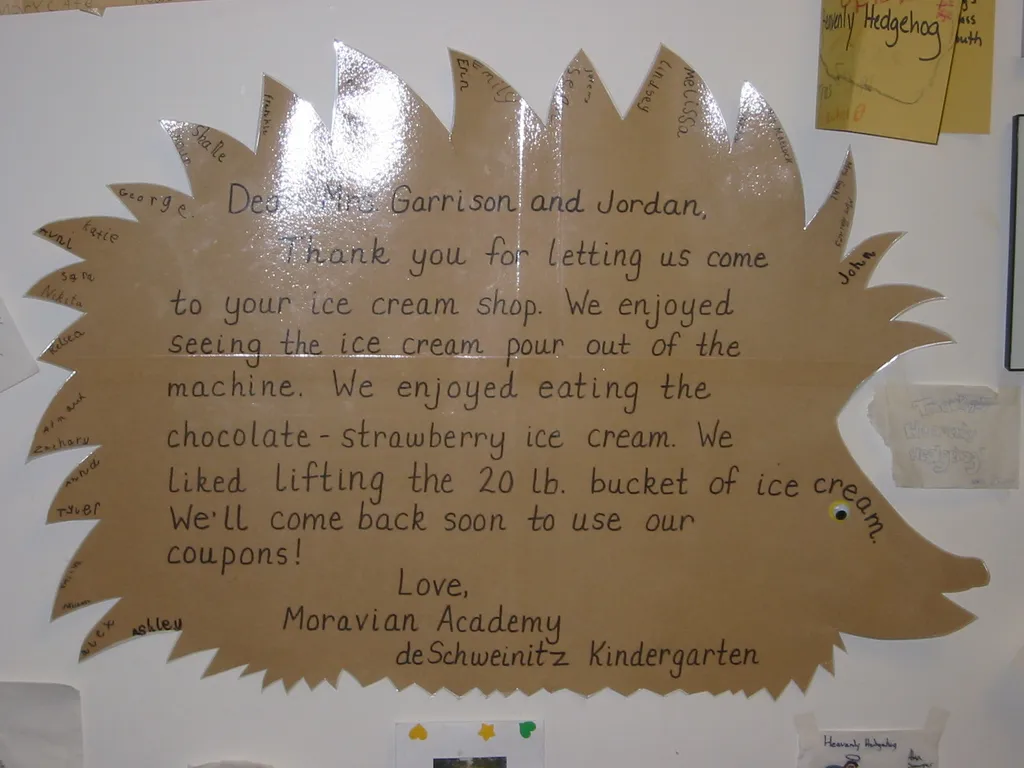 Hedgehog
Erin
Emily
Lindsey
Melissa
Shale
George.
Katie
Avril
Sara
Nikita
Kelsea
Zachary
Anna
Tyler
Alex
Ashley
John
Mrs. Garrison and Jordan,
Thank you for letting us come
to your ice cream shop. We enjoyed
seeing the ice cream pour out of the
machine. We enjoyed eating the
chocolate-strawberry ice cream. We
liked lifting the 20 lb. bucket of ice cream.
We'll come back soon to use our
coupons!
Love,
Moravian Academy
deSchweinitz Kindergarten
Heavenly Hedgehog